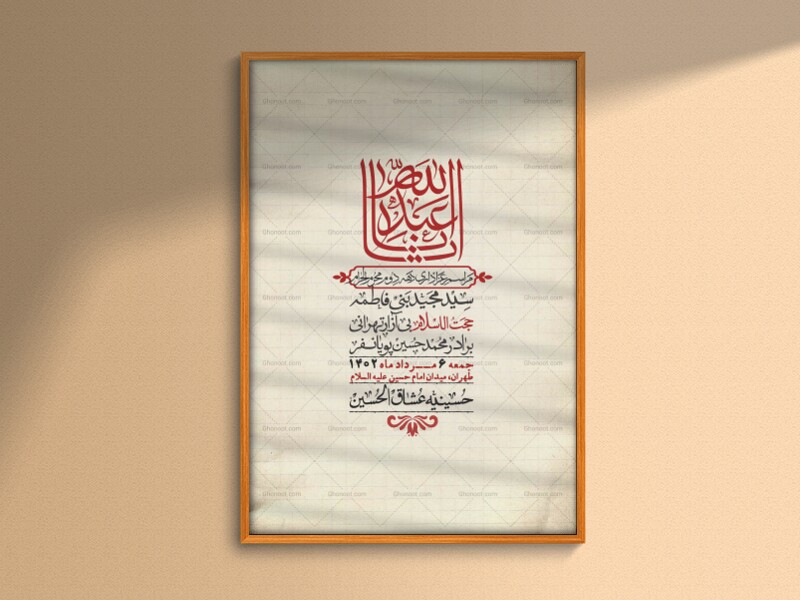 یا اباعبدالله
مراسم عزاداری دهه دوم محرم الحرام
سید مجید بنی فاطمه
حجت الاسلام بی آزار تهرانی
برادر محمد حسین پویانفر
جمعه ۶ مرداد ماه ۱۴۰۲
طهران، میدان امام حسین علیه السلام
حسینیه عشاق الحسین
Ghonoot.com